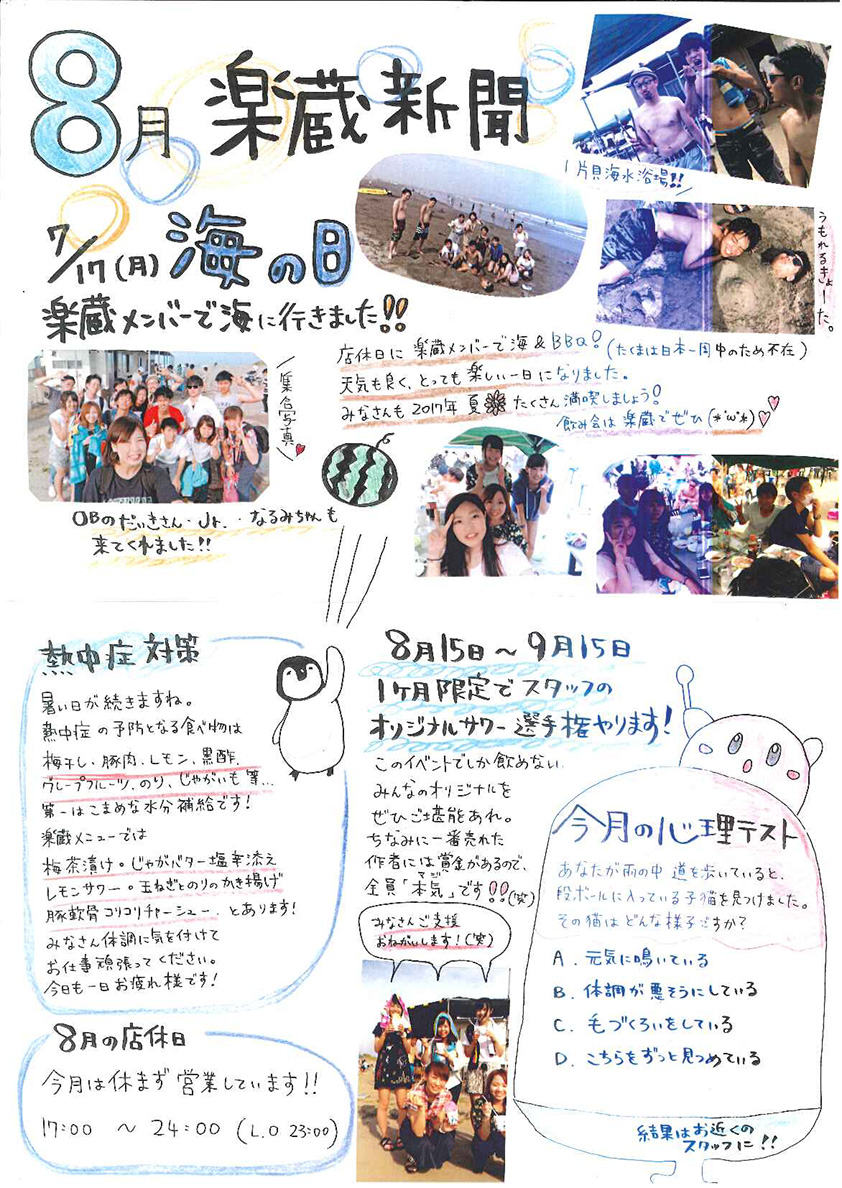 8月 楽蔵新聞
片貝海水浴場!!
うもれるきょーた。
7/17(月) 海の日
楽蔵メンバーで海に行きました!!
店休日に楽蔵メンバーで海&BBQ!(たくまは日本一周中のため不在)
天気も良く、とっても楽しい一日になりました。
みなさんも2017年夏たくさん満喫しましょう!
飲み会は楽蔵でぜひ(*'ω'*)
集合写真
OBのだいきさん・Jr.・なるみちゃんも
来てくれました!!
熱中症対策
暑い日が続きますね。
熱中症の予防となる食べ物は
梅干し、豚肉、レモン、黒酢、
グレープフルーツ、のり、じゃがいも等...
第一はこまめな水分補給です!
楽蔵メニューでは
梅茶漬け。じゃがバター塩辛添え
レモンサワー。玉ねぎとのりのかき揚げ
豚軟骨コリコリチャーシュー、とあります!
みなさん体調に気を付けて
お仕事頑張ってください。
今日も一日お疲れ様です!
8月の店休日
今月は休まず営業しています!!
17:00 ~ 24:00 (L.O 23:00)
8月15日~9月15日
1ヶ月限定でスタッフの
オリジナルサワー選手権やります!
このイベントでしか飲めない
みんなのオリジナルを
ぜひご堪能あれ。
ちなみに一番売れた
作者には賞金があるので、
全員「本気」です!!(笑)
マジ
みなさんご支援
おねがいします!(笑)
今月の心理テスト
あなたが雨の中 道を歩いていると、
段ボールに入っている子猫を見つけました。
その猫はどんな様子ですか?
A. 元気に鳴いている
B. 体調が悪そうにしている
C. 毛づくろいをしている
D. こちらをずっと見つめている
結果はお近くの
スタッフに!!